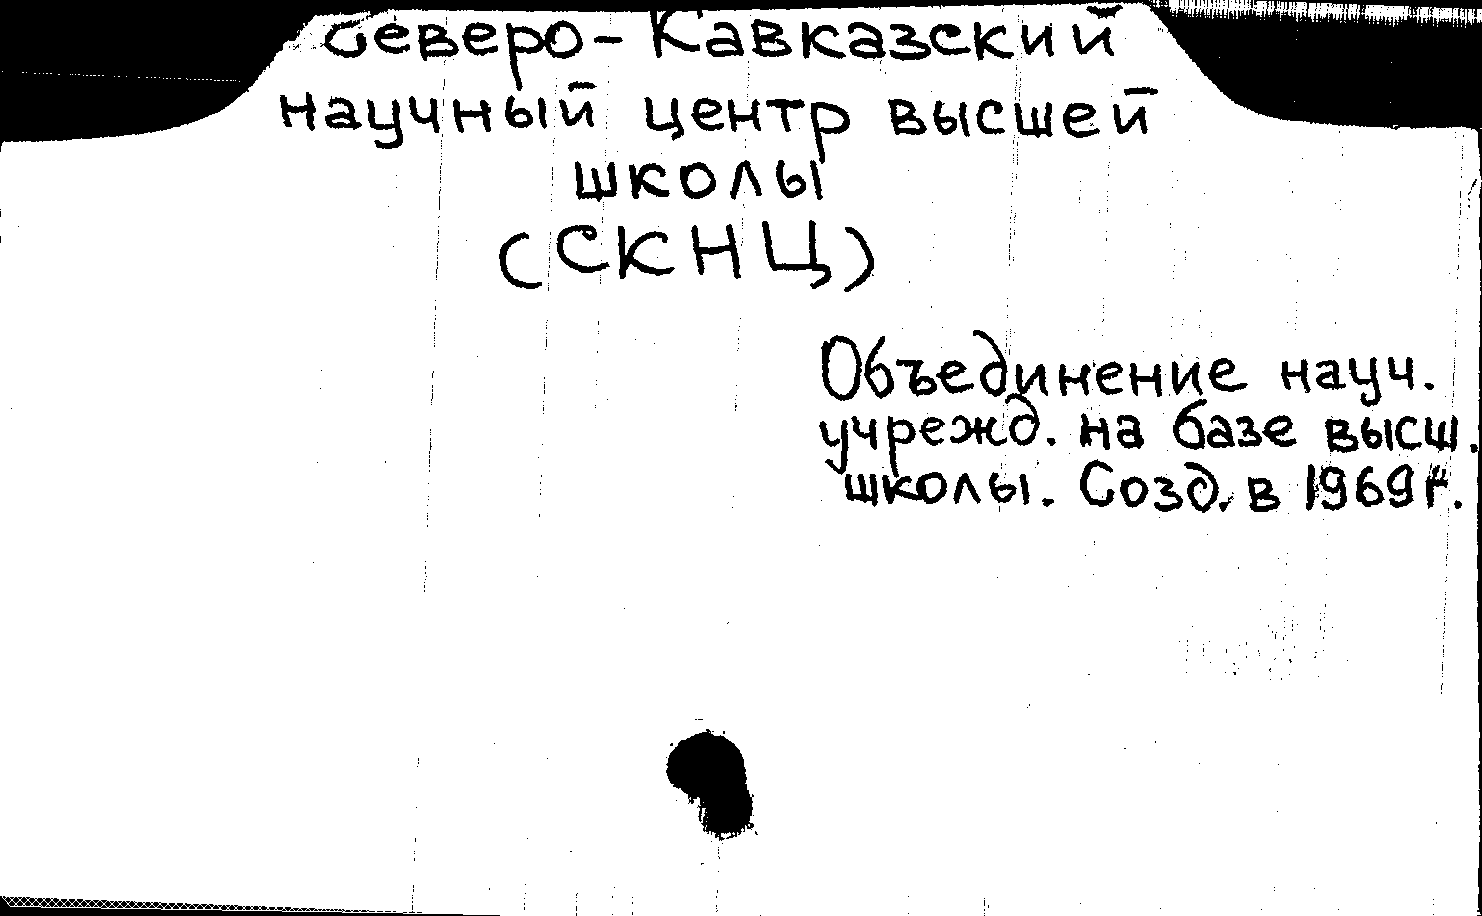 Северо-Кавказский
научный центр высшей
школы
(СКНЦ)
Объединение науч.
учрежд. на базе высш.
школы. Созд. в 1969 г.